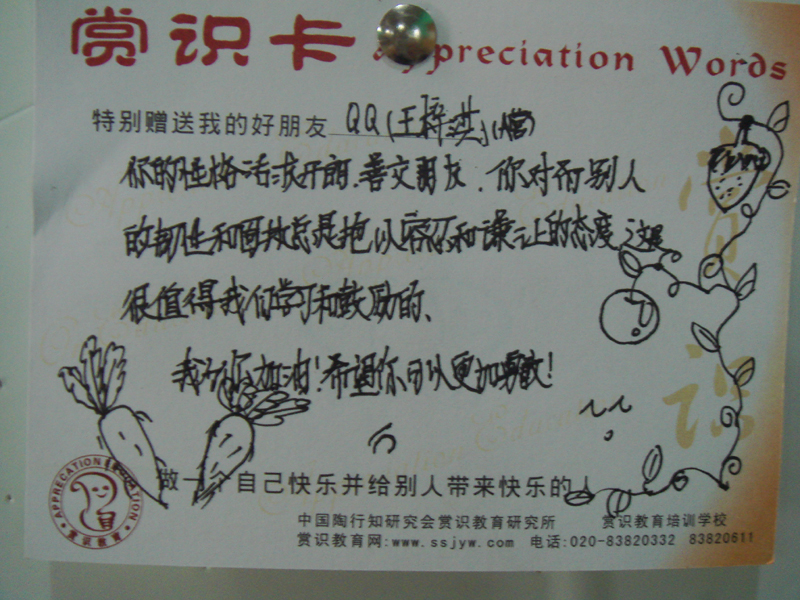 赏识卡 Appreciation Words
特别赠送我的好朋友 QQ(王梓洪)
你的性格活泼开朗.善交朋友.你对而别人
的韧性和 总是抱以容忍和谦让的态度,这是
很值得我们学习和鼓励的、
我为你加油!希望你可以更加勇敢!
赏识
做一个自己快乐并给别人带来快乐的人
APPRECIATION EDUCATION
赏识教育
中国陶行知研究会赏识教育研究所 赏识教育培训学校
赏识教育网:www.ssjyw.com 电话:020-83820332 83820611